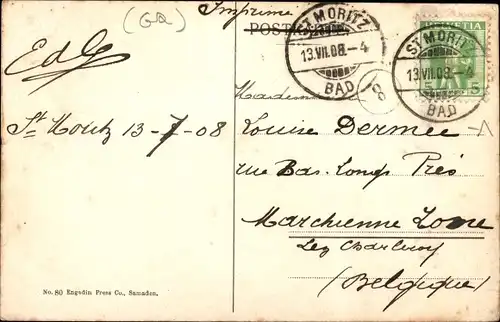 (GR)
Imprimé
POSTKARTE
ST. MORITZ
13.VII.08.-4
BAD
HELVETIA
5 5
ST. MORITZ
13.VII.08.-4
BAD
8
Ed G
St Moritz 13-7-08
Mademoiselle
Louise Dermee
rue Bas Longs Prés
Marchienne Zone
Lez Charleroy
(Belgique)
No. 80 Engadin Press Co., Samaden.